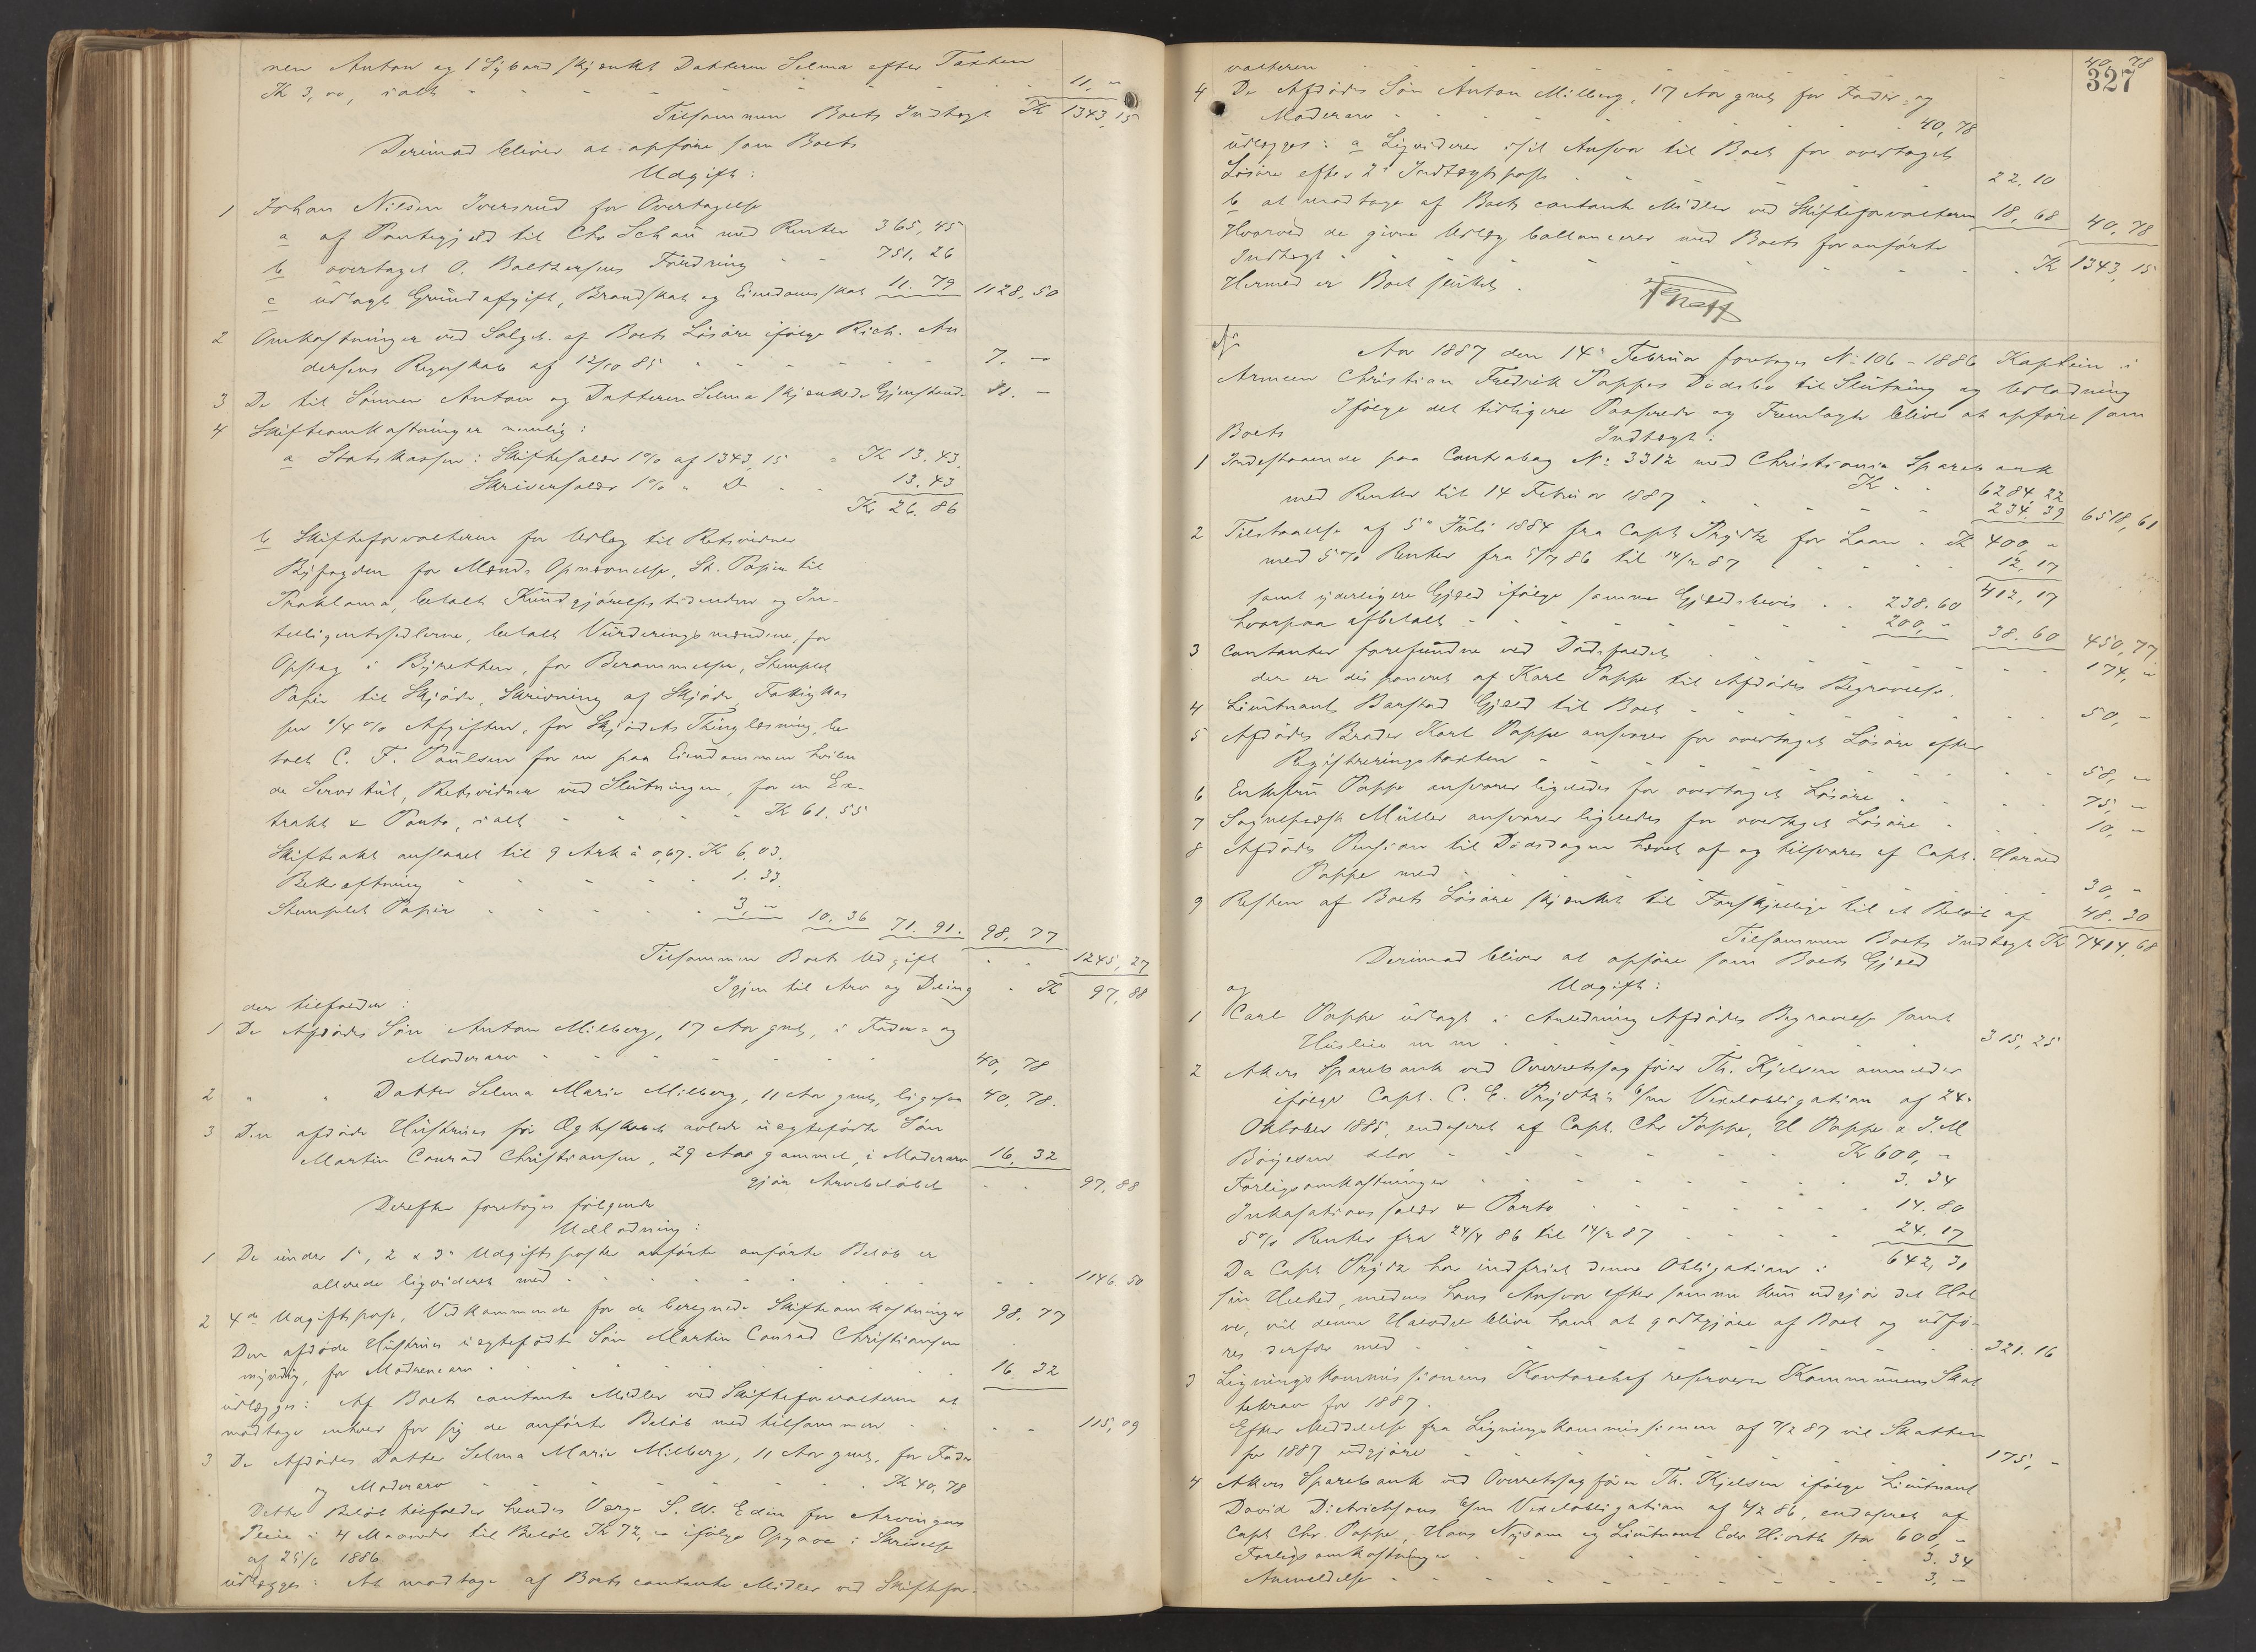 nen Anton og 1 Sybord skjænket Datteren Selma efter Taxten
Kr 3,00, ialt - - - - - - - - 11, "
Tilsammen Boets Indtægt Kr 1343,15
Derimod bliver at opføre som Boets
Udgift:
1 Johan Nilsen Iversrud for Overtagelse
a af Pantegjæld til Chr Schou med Renter 365,45
b overtaget O. Baltzersens Fordring - - 751,26
c udlagt Grundafgift, Brandskat og Eiendomsskat 11.79 1128,50
2 Omkostninger ved Salget af Boets Løsøre ifølge Rich. An
dersens Regnskab af 12/10 85 - - - - - 7. -
3 De til Sønnen Anton og Datteren Selma skjænkede Gjenstande 11. -
4 Skifteomkostninger nemlig:
a Statskassen: Skiftesalær 1% af 1343,15 " Kr 13.43.
Skriversalær 1% " Do - - 13.43
Kr 26.86
b Skifteforvalteren for Udlæg til Retsvidner
Byfogden for Mænds Opnævnelse, St. Papir til
Proklama, betalt Kundgjørelsestidender og In-
telligentssedlerne, betalt Vurderingsmændene, for
Opslag i Byretten, for Berammelse, Stemplet
Papir til Skjøde, Skrivning af Skjøde, Fattigkas
sen 1/4 % Afgiften, for Skjødets Thinglæsning, be
talt C. F. Paulsen for en paa Eiendommen hvilen
de Servitut, Retsvidner ved Slutningen, for en Ex-
trakt & Porto, ialt - - - - Kr 61.55
Skifteakt anslaaet til 9 Ark à 0,67. Kr 6,03.
Bekræftning - - - - - 1.33.
Stemplet Papir - - - - - 3, - 10.36 71.91. 98,77
Tilsammen Boets Udgift - - 1245,27
Igjen til Arv og Deling - Kr 97,88
der tilfalder:
1 De Afdødes Søn Anton Milberg, 17 Aar gml, i Fader- og
Moderarv - - - - - - - - 40,78
2 " " Datter Selma Marie Milberg, 11 Aar gml, ligesaa 40,78.
3 Den afdøde Hustrues før Ægteskabet avlede uægtefødte Søn
Martin Conrad Christiansen, 29 Aar gammel, i Moderarv 16,32
gjør Arvebeløbet - - 97,88
Derefter foretoges følgende
Udlodning:
1 De under 1", 2 & 3" Udgiftsposter anførte anførte Beløb er
allerede ligvideret med - - - - - - - - 1146.50
2 4de Udgiftspost, Vedkommende for de beregnede Skifteomkostninger 98,77
Den afdøde Hustrues uægtefødte Søn Martin Conrad Christiansen
myndig, for Mødrenearv - - - - - - - 16.32
udlægges: Af Boets contante Midler ved Skifteforvalteren at
modtage enhver for sig de anførte Beløb med tilsammen - - - 115,09
3 De Afdødes Datter Selma Marie Milberg, 11 Aar gml, for Fader
og Moderarv - - - - - - - Kr 40,78
Dette Beløb tilfalder hendes Værge S. W. Edin for Arvingens
Pleie i 4 Maaneder til Beløb Kr 72, " ifølge Opgave i Skrivelse
af 25/6 1886
udlægges: At modtage af Boets contante Midler ved Skiftefor-
327
valteren - - - - - - - - - 40,78
4 De Afdødes Søn Anton Milberg, 17 Aar gml for Fader- og
Moderarv - - - - - - - - 40,78
udlægges: a Ligviderer i sit Ansvar til Boet for overtaget
Løsøre efter 2" Indtægtspost - - - - - 22.10
b at modtage af Boets contante Midler ved Skifteforvalteren 18,68 40,78
Hvorved de givne Udlæg ballancerer med Boets foranførte
Indtægt - - - - - - - - - Kr 1343,15
Hermed er Boet sluttet.
Aar 1887 den 14" Februar foretoges No 106 - 1886 Kaptein i
Armeen Christian Fredrik Poppes Dødsbo til Slutning og Udlodning
Ifølge det tidligere Passerede og Fremlagte bliver at opføre som
Boets Indtægt:
1 Indestaaende paa Contrabog No 3312 med Christiania Sparebank
Kr - - 6284,22
med Renter til 14 Februar 1887 - - - - - 234.39 6518,61
2 Tilstaaelse af 5" Juli 1884 fra Capt Prydtz for Laan " Kr 400, "
med 5% Renter fra 5/7 86 til 14/2 87 - - - - 12,17
412,17
samt yderligere Gjæld ifølge samme Gjældsbevis - - 238.60
hvorpaa afbetalt - - - - - - - 200, " 38.60 450,77
3 Contanter forefundne ved Dødsfaldet - - - - - - 174, "
der er disponeret af Karl Poppe til Afdødes Begravelse.
4 Lieutnant Barstad Gjæld til Boet - - - - - - 50, "
5 Afdødes Broder Karl Poppe ansvarer for overtaget Løsøre efter
Registreringstaxten - - - - - - - - 58, "
6 Enkefru Poppe ansvarer ligeledes for overtaget Løsøre - - - 75, "
7 Sognepræst Müller ansvarer ligeledes for overtaget Løsøre - - 10, "
8 Afdødes Pension til Dødsdagen hævet af og tilsvares af Capt. Harald
Poppe med - - - - - - - - - 30, "
9 Resten af Boets Løsøre skjænket til Forskjellige til et Beløb af 48.30
Tilsammen Boets Indtægt Kr 7414,68
Derimod bliver at opføre som Boets Gjæld
og Udgift:
1 Carl Poppe udlagt i Anledning Afdødes Begravelse samt
Husleie m m - - - - - - - - 315,25
2 Akers Sparebank ved Overretssagfører Th. Kjelsen anmelder
ifølge Capt. C. E. Prydtz's 6/m Vexelobligation af 24.
Oktober 1885, endosseret af Capt. Chr Poppe, H Poppe & J. M
Böyesen stor - - - - - - Kr 600, "
Forligsomkostninger - - - - - - - 3.34
Inkasationssalær & Porto - - - - - - 14.80
5% Renter fra 24/4 86 til 14/2 87 - - - - 24.17
642,31
Da Capt Prydz har indfriet denne Obligation i
sin Helhed, medens hans Ansvar efter samme kun udgjør det Hal
ve, vil denne Halvdel blive ham at godtgjøre af Boet og udfø-
res derfor med - - - - - - - 321.16
3 Ligningskommissionens Kontorchef reserverer Kommunens Skat
tekrav for 1887.
Efter Meddelelse fra Ligningskommissionen af 7/2 87 vil Skatten
for 1887 udgjøre - - - - - - - 175, -
4 Akers Sparebank ved Overretssagfører Th. Kjelsen ifølge Lieutnant
David Dietrichsons 6/m Vexelobligation af 6/2 86, endosseret af
Capt Chr. Poppe, Hans Nysom og Lieutnant Edv Hiorth stor 600, -
Forligsomkostninger - - - - - - - 3.34
Anmeldelse - - - - - - - - - 3, -